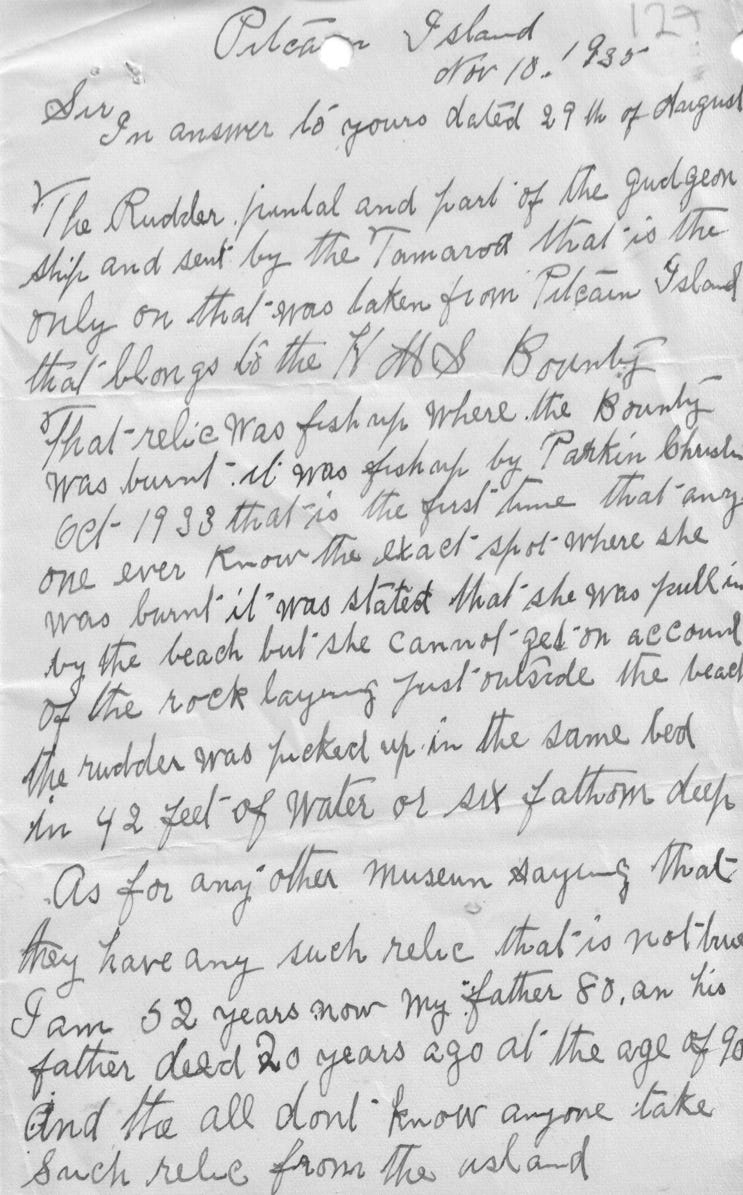 127
Pitcain Island
Nov 10. 1935
Sir
In answer to yours dated 29th of August
The Rudder pintal and part of the gudgeon
ship and sent by the Tamaroa that is the
only on that was taken from Pitcain Island
that blongs to the H M S Bounty
That relic was fish up where the Bounty
was burnt it was fish up by Parkin Christn
Oct 1933 that is the first time that any
one ever know the exact spot where she
was burnt it was stated that she was pull in
by the beach but she cannot get on account
of the rock laying just outside the beach
the rudder was picked up in the same bed
in 42 feet of water or six fathom deep
As for any other museun saying that
they have any such relic that is not true
I am 52 years now my father 80, an his
father deed 20 years ago at the age of 90
And the all dont know anyone take
such relic from the island